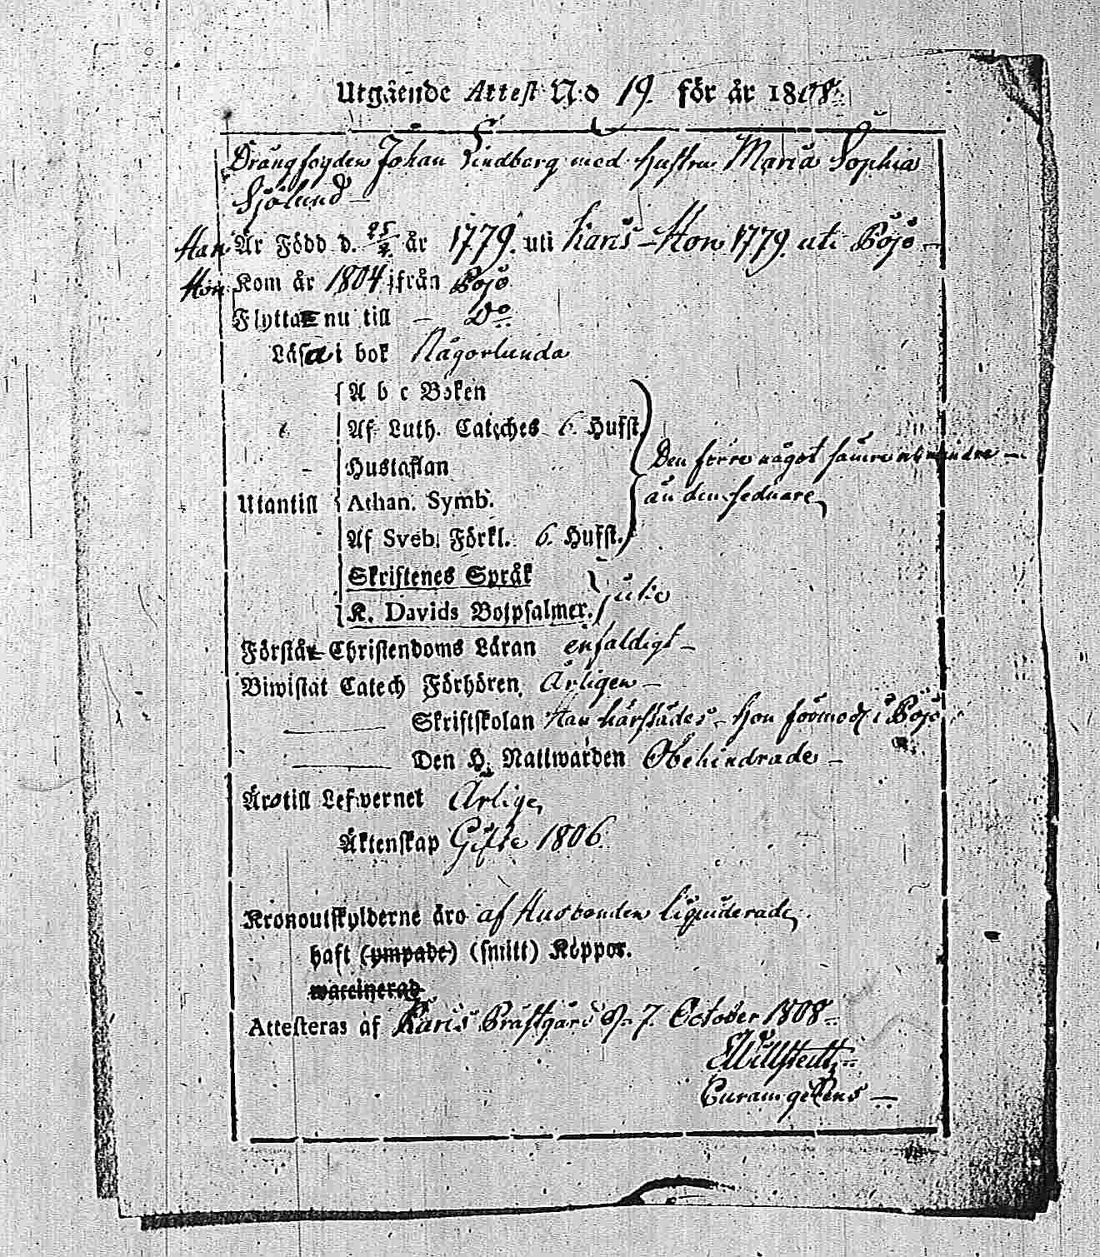 Utgående Attest N:o 19. för år 1808.
Drängssyden Johan Lindberg med hustru Maria Sophia
Sjölund
Han Är Född d. 25/4. år 1779. uti Karis – Hon 1779. uti Pojo –
Hon Kom år 1804 ifrån Pojo
Flytta nu till – Do
Läsa i bok Någorlunda
A b c Boken
Af Luth. Catches 6. Hufst.
Hustaflan
Den förre något sämre mindre –
Utantill Athan. Symb.
än den sednare
Af Sveb. Förkl. 6. Hufst.
Skriftenes Språk
K. Davids Botpsalmer.
Förstår Christendoms Läran enfaldigt –
Biwistat Catech Förhören Årligen –
Skriftskolan Han härstädes – hon i Pojo
Den H. Nattwarden Obehindrade –
Äro till Lefwernet Ärlige
Äktenskap Gifte 1806.
Kronoutskylderne äro af Husbonden liquiderade
haft (ympade) (smitt) Koppor.
waccinerad
Attesteras af Karis Prästgård d. 7. October 1808.
Curam gerens –